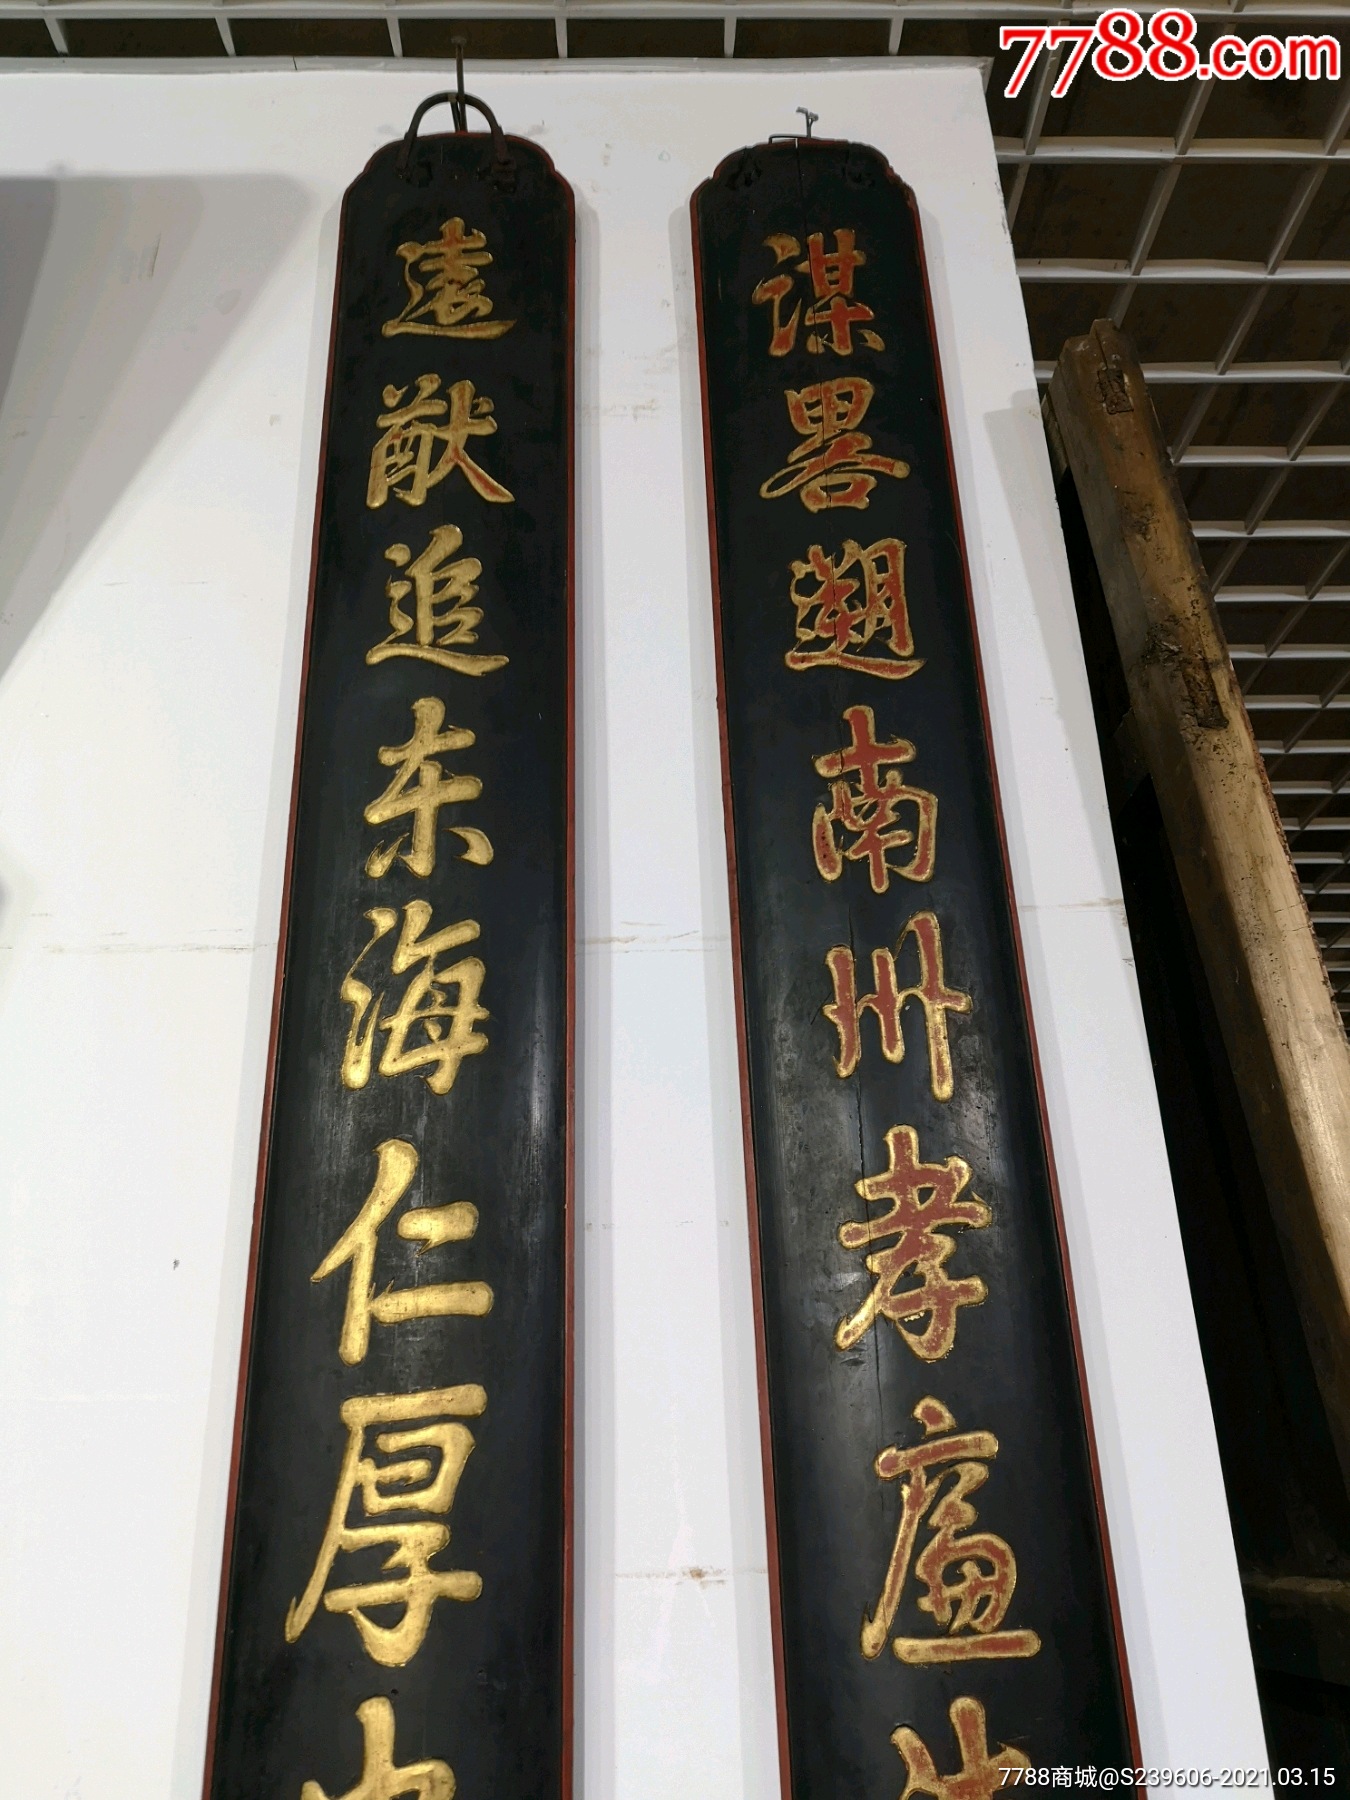 7788.com
謀畧遡南州孝廉
遠猷追东海仁厚
7788商城@S239606-2021.03.15